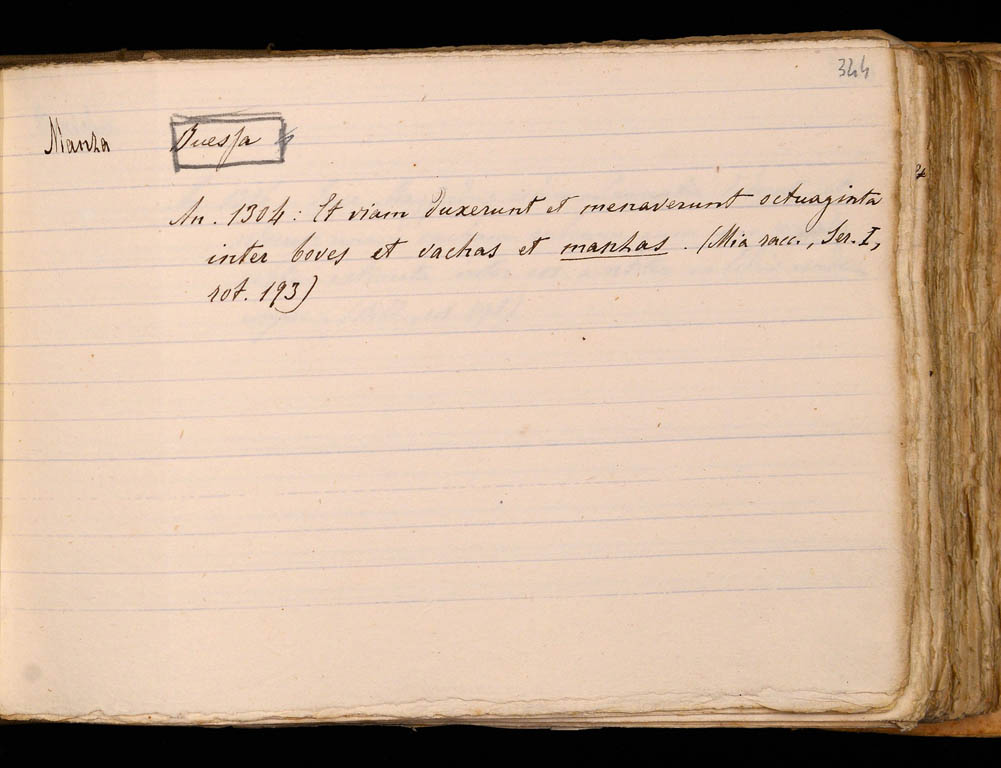 344
Manza Buessa
An. 1304: Et viam duxerunt et menaverunt octuaginta
inter boves et vachas et manzas. (Mia racc., Ser. I,
rot. 193)